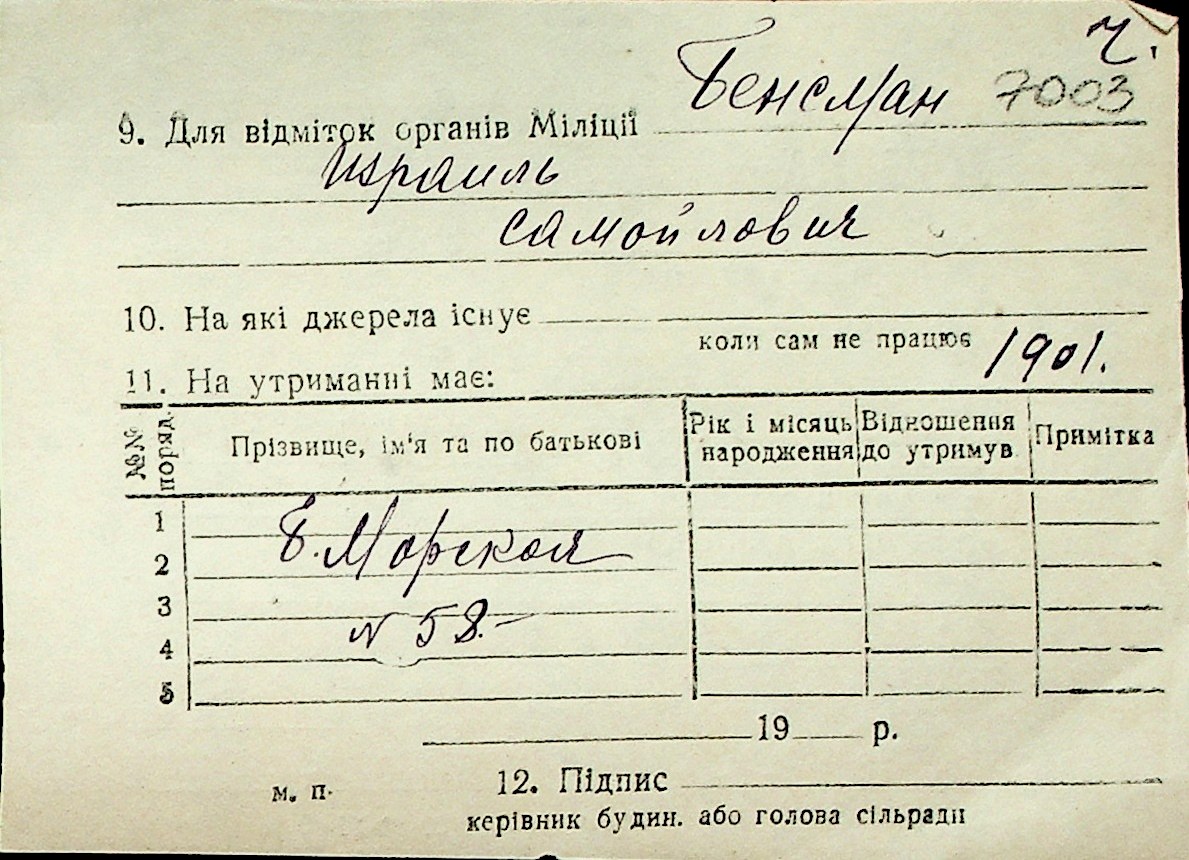 Ч.
Бенсман 7003
9. Для відміток органів Міліції
Израиль
Самойлович
10. На які джерела існує
коли сам не працює
1901.
11. На утриманні має:
№№ поряд.
Прізвище, ім'я та по батькові
Рік і місяць народження
Відношення до утримув.
Примітка
1
Б. Морская
2
3
N 58.-
4
5
19 р.
м. п.
12. Підпис
керівник будин. або голова сільради